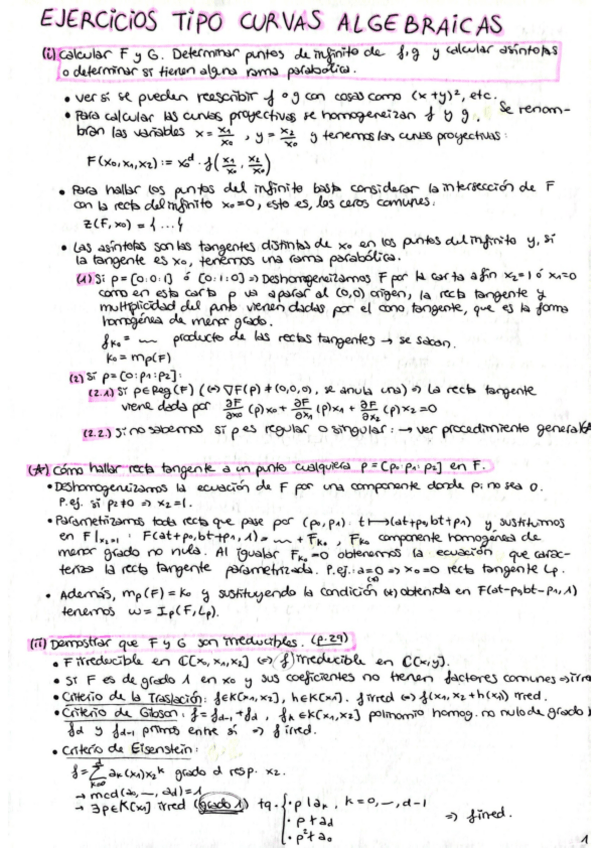 EJERCICIOS TIPO CURVAS ALGEBRAICAS
(i) Calcular F y G. Determinar puntos de infinito de f, g y calcular asíntotas
o determinar si tienen alguna rama parabólica.
• Ver si se pueden reescribir f o g con cosas como (x+y)², etc.
• Para calcular las curvas proyectivas se homogeneizan f y g. Se renom-
bran las variables x = x₁/x₀, y = x₂/x₀ y tenemos las curvas proyectivas:
F(x₀,x₁,x₂) := x₀ᵈ · f(x₁/x₀, x₂/x₀)
• Para hallar los puntos del infinito basta considerar la intersección de F
con la recta del infinito x₀=0, esto es, los ceros comunes:
Z(F,x₀) = {...}
• Las asíntotas son las tangentes distintas de x₀ en los puntos del infinito y, si
la tangente es x₀, tenemos una rama parabólica.
(1) Si p=[0:0:1] ó [0:1:0] ⇒ Deshomogeneizamos F por la carta afín x₂=1 ó x₁=0
como en esta carta p va a parar al (0,0) origen, la recta tangente y
multiplicidad del punto vienen dadas por el cono tangente, que es la forma
homogénea de menor grado.
fₖ₀ = ~ producto de las rectas tangentes → se sacan.
k₀ = mp(F)
(2) Si p=[0:p₁:p₂]:
(2.1) Si p∈Reg(F) (⇔ ∇F(p) ≠ (0,0,0), se anula una) ⇒ La recta tangente
viene dada por ∂F/∂x₀ (p)x₀ + ∂F/∂x₁ (p)x₁ + ∂F/∂x₂ (p)x₂ = 0
(2.2) Si no sabemos si p es regular o singular: → ver procedimiento general
Cómo hallar recta tangente a un punto cualquiera p=[p₀:p₁:p₂] en F.
• Deshomogeneizamos la ecuación de F por una componente donde pᵢ no sea 0.
P.ej. si p₂≠0 ⇒ x₂=1.
• Parametrizamos toda recta que pase por (p₀,p₁): t ↦ (at+p₀, bt+p₁) y sustituimos
en F|ₓ₂₌₁: F(at+p₀, bt+p₁, 1) = ~ + Fₖ₀, Fₖ₀ componente homogénea de
menor grado no nula. Al igualar Fₖ₀=0 obtenemos la ecuación que carac-
teriza la recta tangente parametrizada. P.ej: a=0 ⇒ x₀=0 recta tangente Lp.
(*)
• Además, mp(F) = k₀ y sustituyendo la condición (*) obtenida en F(at-p₀, bt-p₁, 1)
tenemos w = Ip(F, Lp).
(ii) Demostrar que F y G son irreducibles. (p.29)
• F irreducible en ℂ[x₀,x₁,x₂] ⇔ f irreducible en ℂ(x,y).
• Si F es de grado 1 en x₀ y sus coeficientes no tienen factores comunes ⇒ irre
• Criterio de la Traslación: f∈K[x₁,x₂], h∈K[x₁]. f irred ⇔ f(x₁, x₂+h(x₁)) irred.
• Criterio de Gibson: f = f_{d-1} + f_d, fₖ∈K[x₁,x₂] polinomio homog. no nulo de grado
f_d y f_{d-1} primos entre sí ⇒ f irred.
• Criterio de Eisenstein:
f = Σ_{k=0}^{d} aₖ(x₁)x₂ᵏ grado d resp. x₂.
→ mcd(a₀, ~, a_d) = 1
→ ∃p∈K[x₁] irred (grado 1) tq. { • p | aₖ, k=0, ~, d-1
• p ∤ a_d
• p² ∤ a₀
⇒ f irred.
1